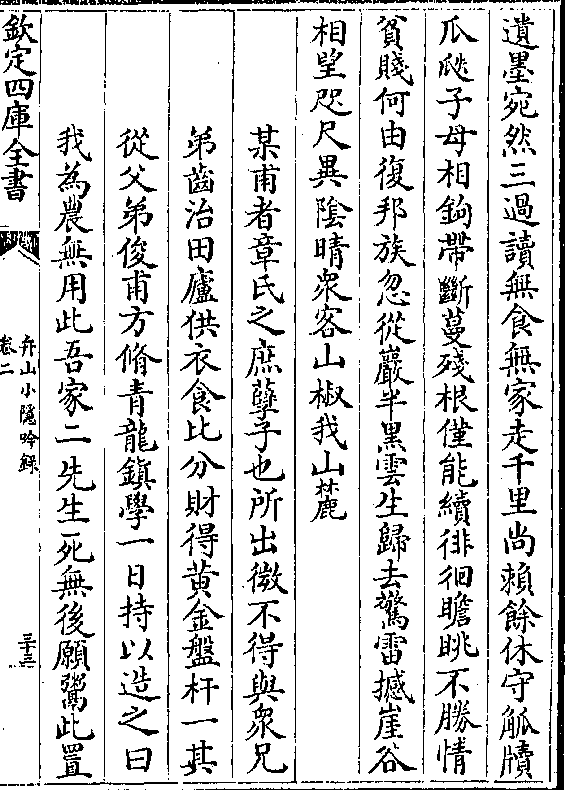 遺墨宛然三過讀無食無家走千里尚賴餘休守觚牘
瓜瓞子母相鉤帶斷蔓殘根僅能續徘徊瞻眺不勝情
貧賤何由復邦族忽從巖半黑雲生歸去驚雷撼崖谷
相望咫尺異陰晴衆客山椒我山麓
某甫者章氏之庶孽子也所出微不得與衆兄
弟齒治田廬供衣食比分財得黄金盤杆一其
從父弟俊甫方脩青龍鎮學一日持以造之曰
我為農無用此吾家二先生死無後願鬻此置
欽定四庫全書
弁山小隱吟録
卷二
三十三